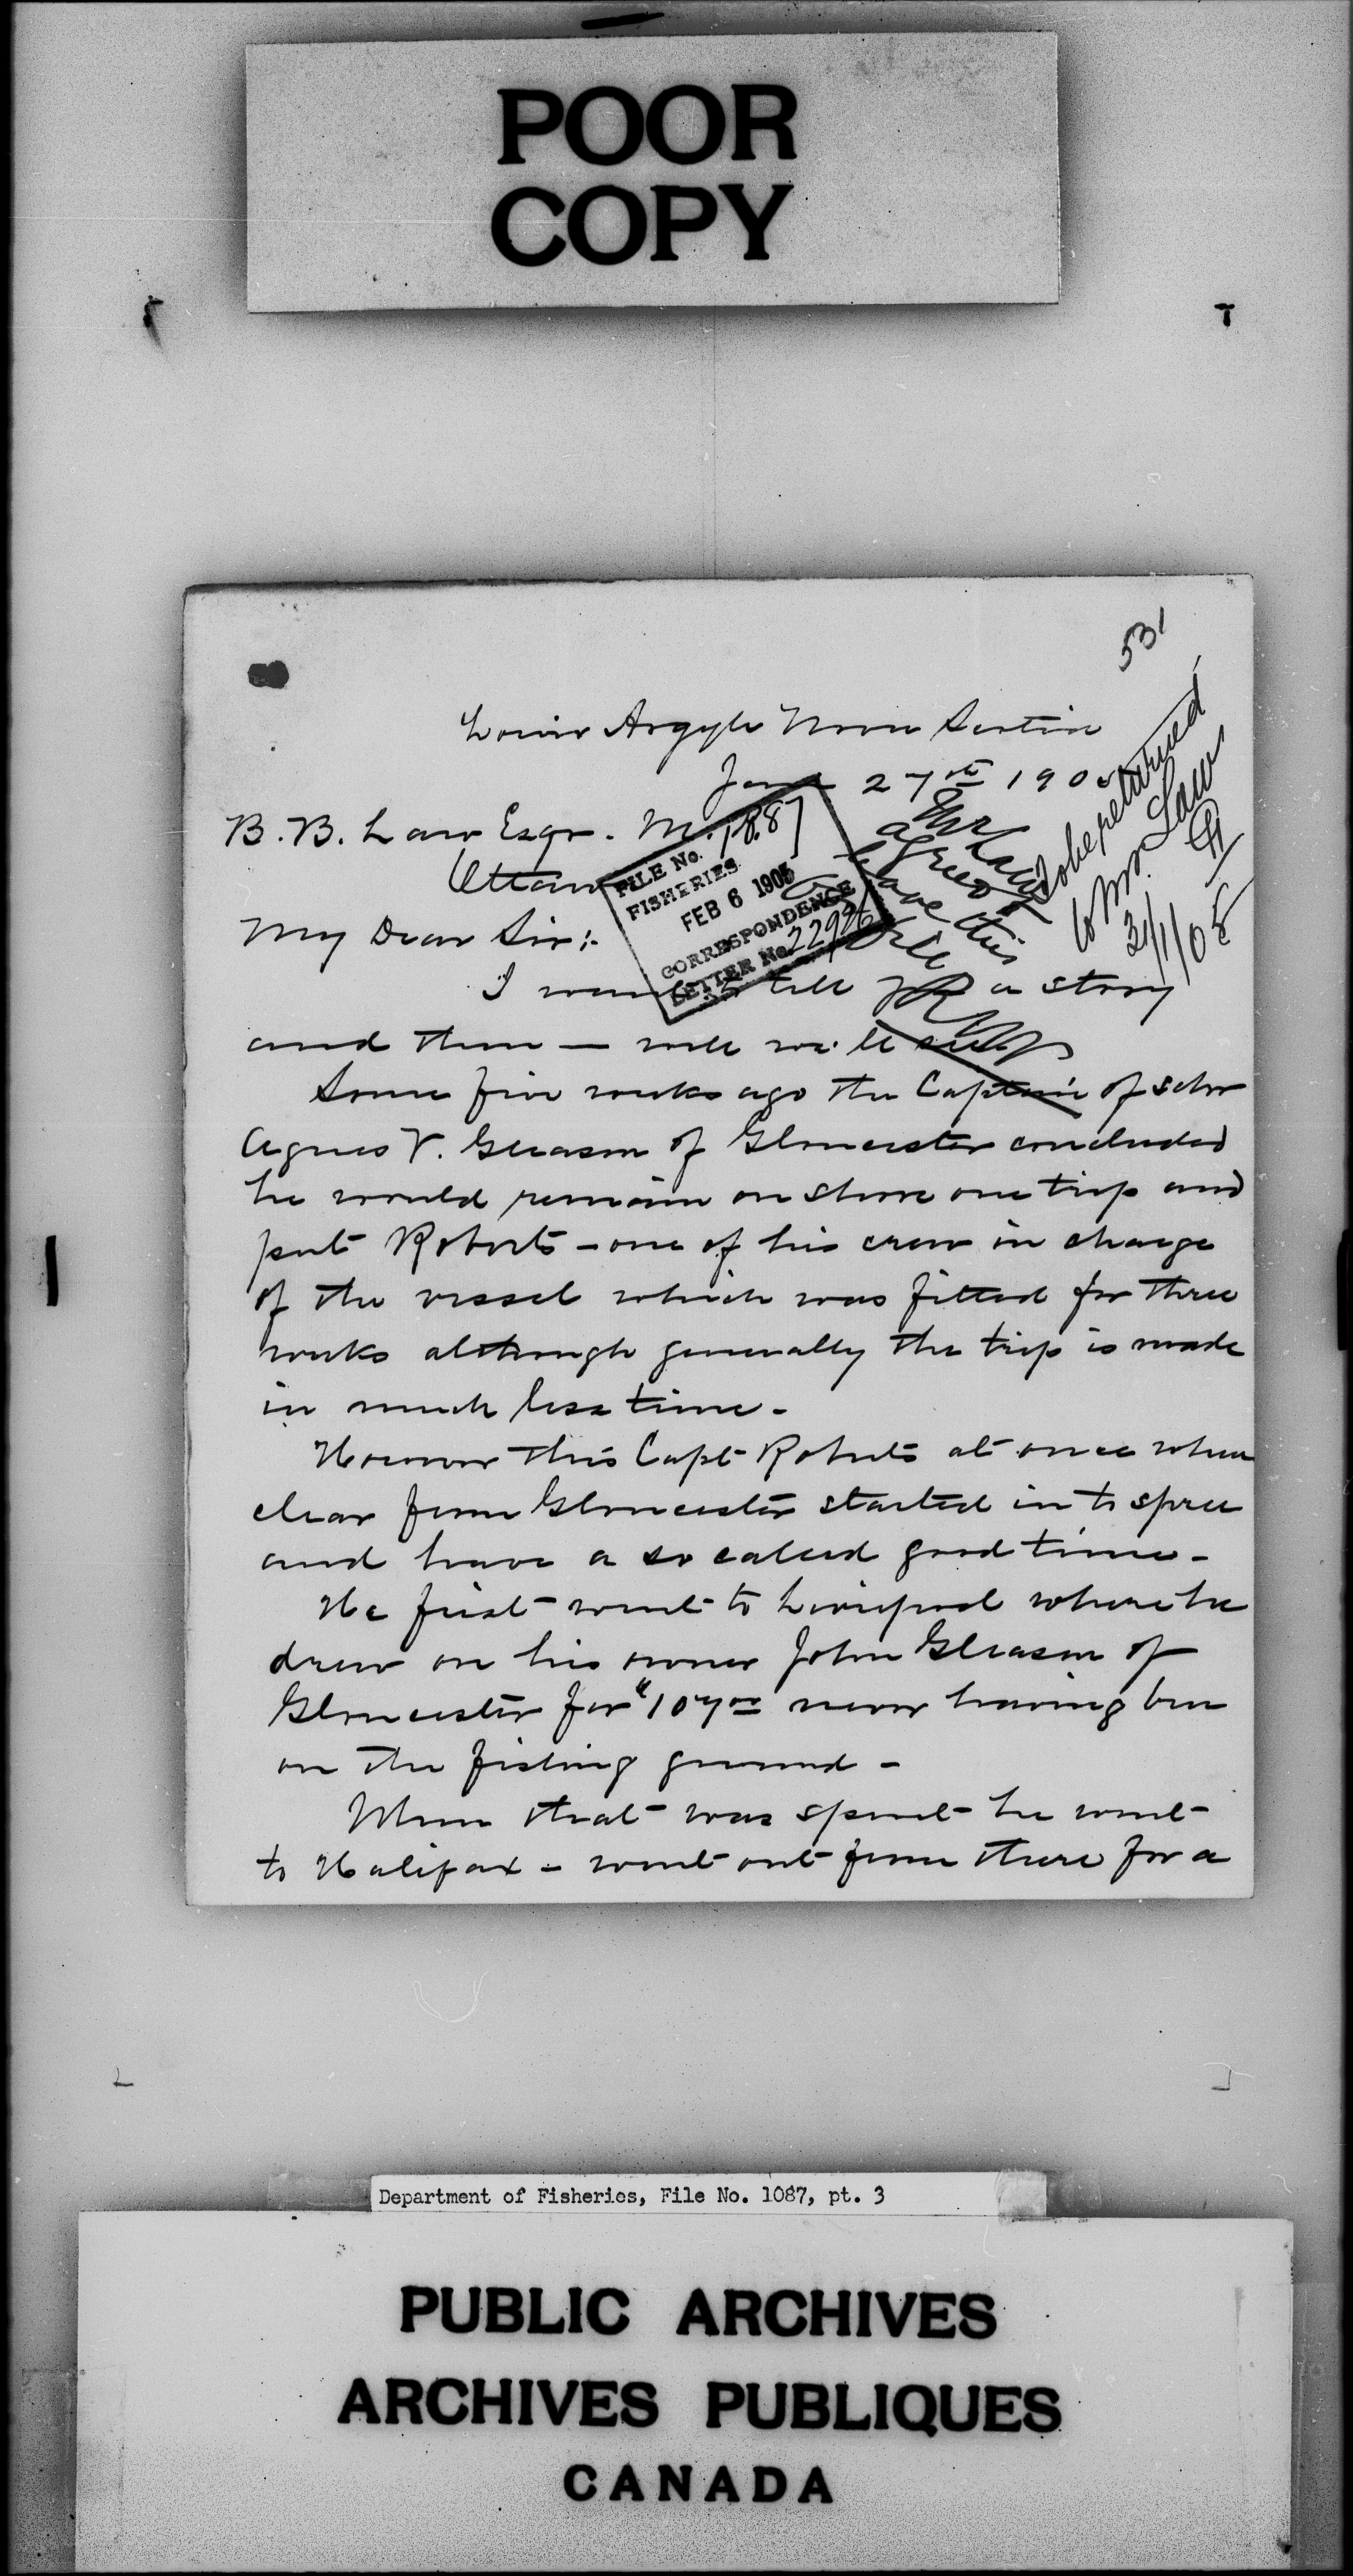 POOR
COPY
531
Lower Argyle Nova Scotia
Jan 27th 1905
To be returned
to Mr. Law
31/1/05
Mr Law
agrees to
leave this
on file
B. B. Law Esqr. M.P.
Ottawa
FILE No. 1887
FISHERIES
FEB 6 1905
CORRESPONDENCE
LETTER No. 22926
My Dear Sir:-
I want to tell you a story
and then — well we'll see
Some five weeks ago the Captain of schr
Agnes V. Gleason of Gloucester concluded
he would remain on shore one trip and
put Roberts - one of his crew in charge
of the vessel which was fitted for three
weeks although generally the trip is made
in much less time -
However this Capt Roberts at once when
clear from Gloucester started in to spree
and have a so called good time -
He first went to Liverpool where he
drew on his owner John Gleason of
Gloucester for $107.00 never having been
on the fishing ground -
When that was spent he went
to Halifax - went out from there for a
Department of Fisheries, File No. 1087, pt. 3
PUBLIC ARCHIVES
ARCHIVES PUBLIQUES
CANADA